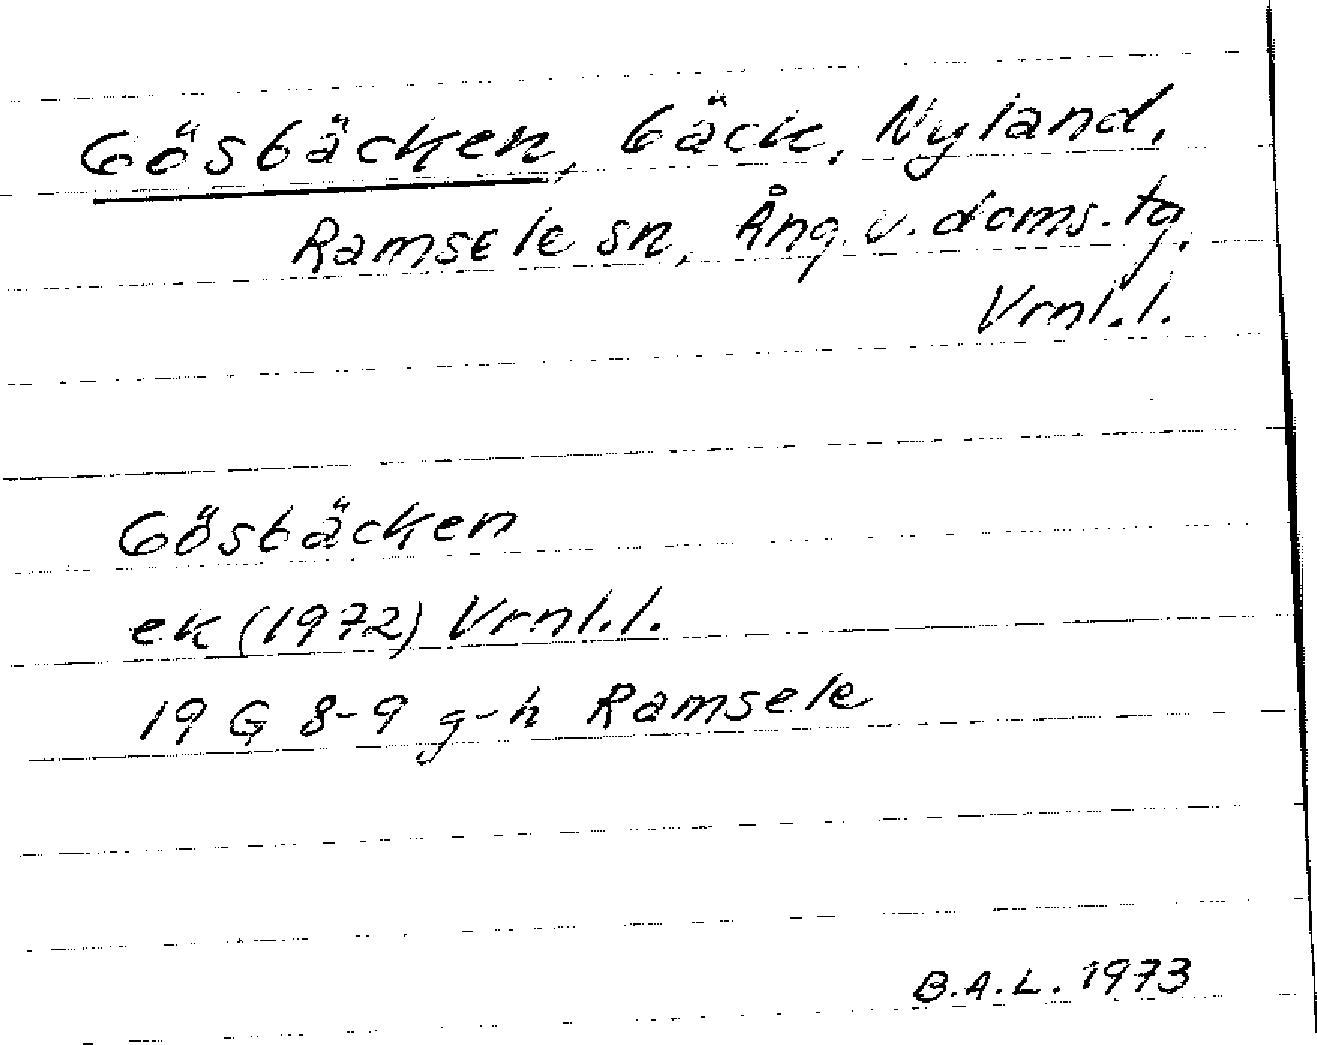 Gösbäcken, bäck, Nyland,
Ramsele sn, Ång. v. doms. tg,
Vrnl. l.
Gösbäcken
ek (1972) Vrnl. l.
19 G 8-9 g-h Ramsele
B.A.L. 1973